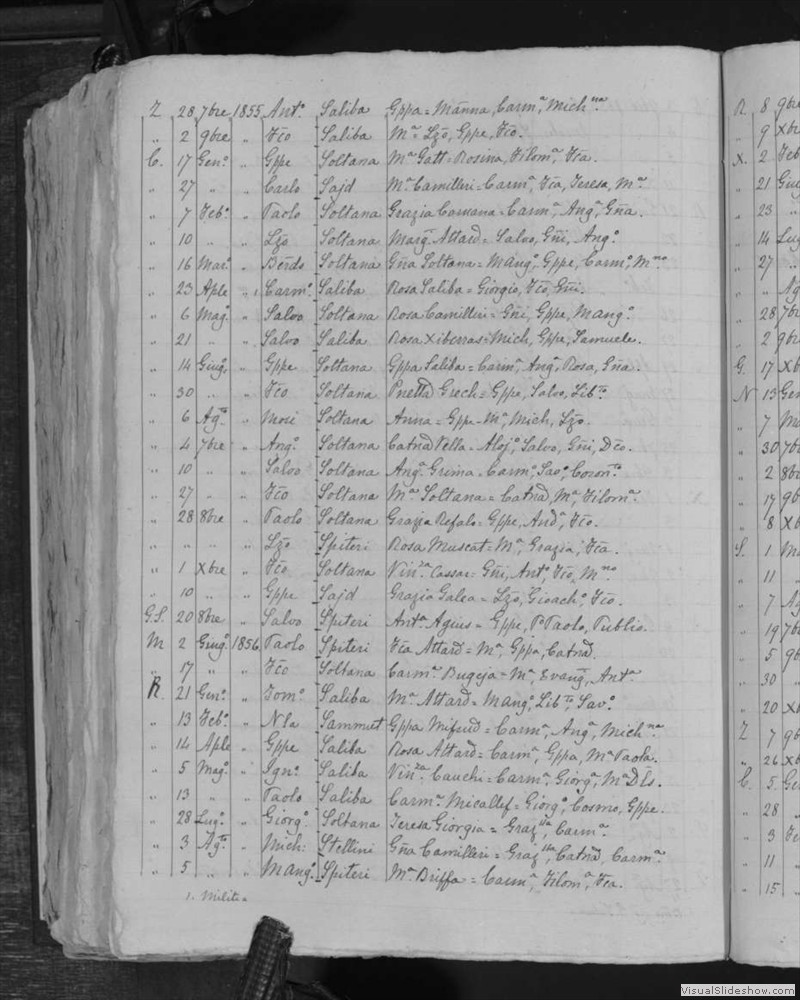 Z 28 7bre 1855 Ant.º Saliba Gppa = Mañna, Carm.ª Mich.na
" 2 9bre " Fcõ Saliba M.ª = Lzõ, Gppe, Fcõ.
C. 17 Gen.º " Gppe Soltana M.ª Gatt = Rosina, Filom.ª, Fca.
" 27 " " Carlo Sajd M.ª Camilleri = Carm.ª, Fca, Teresa, M.ª
" 7 Feb.º " Paolo Soltana Grazia Camana = Carm.ª, Ang.ª, Gña.
" 10 " " Lzõ Soltana Marg.ª Attard = Salvo, Gñi, Ang.º
" 16 Mar.º " Berds Soltana Gña Soltana = Mang.º, Gppe, Carm.º, M.no
" 23 Aple " 1 Carm.º Saliba Rosa Saliba = Giorgio, Fcõ, Gñi.
" 6 Mag.º " Salvo Soltana Rosa Camilleri = Gñi, Gppe, Mang.º
" 21 " " Salvo Saliba Rosa Xiberras = Mich, Gppe, Samuele.
" 14 Giug.º " Gppe Soltana Gppa Saliba = Carm.ª, Ang.ª, Rosa, Gña.
" 30 " " Fcõ Soltana Pnetta Grech = Gppe, Salvo, Lib.to
" 6 Ag.to " Mosi Soltana Anna = Gppe = M.ª, Mich, Lzõ.
" 4 7bre " Ang.º Soltana Catnã Vella = Aloj.º, Salvo, Gñi, Dcõ.
" 10 " " Salvo Soltana Ang.ª Grima = Carm.º, Sav.º, Coron.to
" 27 " " Fcõ Soltana M.ª Soltana = Catnã, M.ª, Filom.ª
" 28 8bre " Paolo Soltana Grazia Refalo = Gppe, And.ª, Fcõ.
" " " " Lzõ Spiteri Rosa Muscat = M.ª, Grazia, Fca.
" 1 Xbre " Fcõ Soltana Vin.za Cassar = Gñi, Ant.º, Fcõ, M.no
" 10 " " Gppe Sajd Grazia Galea = Lzõ, Gioach.º, Fcõ.
G.S. 20 8bre " Salvo Spiteri Ant.ª Agius = Gppe, P.º Paolo, Publio.
M 2 Giug.º 1856 Paolo Spiteri Fca Attard = M.ª, Gppa, Catnã.
" 17 " " Fcõ Soltana Carm.ª Bugeja = M.ª, Evang.ª, Ant.ª
R. 21 Gen.º " Tom.º Saliba M.ª Attard = Mang.º, Lib.to, Sav.º
" 13 Feb.º " Nla Sammut Gppa Mifsud = Carm.ª, Ang.ª, Mich.na
" 14 Aple " Gppe Saliba Rosa Attard = Carm.ª, Gppa, M.ª Paola.
" 5 Mag.º " Ign.º Saliba Vin.za Cauchi = Carm.ª, Giorg.ª, M.ª Dls.
" 13 " " Paolo Saliba Carm.ª Micallef = Giorg.º, Cosmo, Gppe.
" 28 Lug.º " Giorg.º Soltana Teresa Giorgia = Graz.lla, Carm.ª
" 3 Ag.to " Mich: Stellini Gña Camilleri = Graz.lla, Catnã, Carm.ª
" 5 " " Mang.º Spiteri M.ª Briffa = Carm.ª, Filom.ª, Fca.
1. Militia
R 8 9bre
" 9 Xbre
X. 2 Feb
" 21 Giu
" 23 "
" 14 Lug
" 27 "
" " Ag
" 28 7br
" 2 9br
G. 17 Xb
N 13 Gen
" 7 Ma
" 30 7b
" 2 8br
" 17 9b
" 8 Xb
S. 1 Ma
" 11 "
" 7 Ag
" 19 7b
" 5 9b
" 30 "
" 20 Xb
Z 7 9b
" 26 Xb
C. 5 Ge
" 28 "
" 3 Fe
" 11 "
" 15 "
VisualSlideshow.com